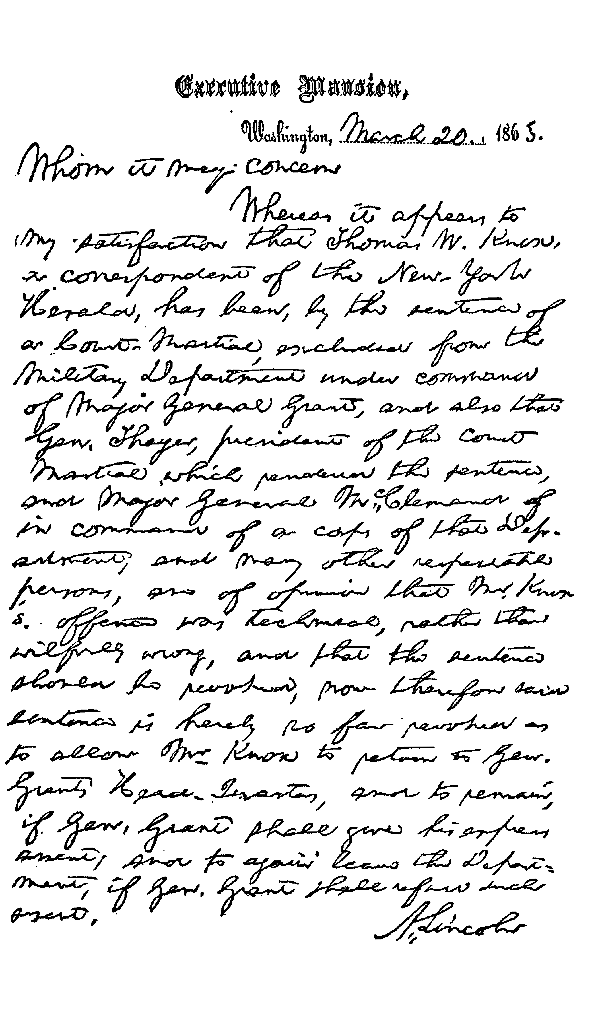 Executive Mansion,
Washington, March 20., 1865.
Whom it may concern
Whereas it appears to
my satisfaction that Thomas W. Knox,
a correspondent of the New-York
Herald, has been, by the sentence of
a Court-Martial, excluded from the
Military Department under command
of Major General Grant, and also that
Gen. Thayer, president of the Court
Martial which rendered the sentence,
and Major General McClernand
in command of a corps of that Dep-
artment, and many other respectable
persons, are of opinion that Mr Knox
's. offence was technical, rather than
wilfully wrong, and that the sentence
should be revoked, now therefore said
sentence is hereby so far revoked as
to allow Mr Knox to return to Gen.
Grants Head-Quarters, and to remain,
if Gen. Grant shall give his express
assent; and to again leave the Depart-
ment, if Gen. Grant shall refuse such
assent.
A. Lincoln